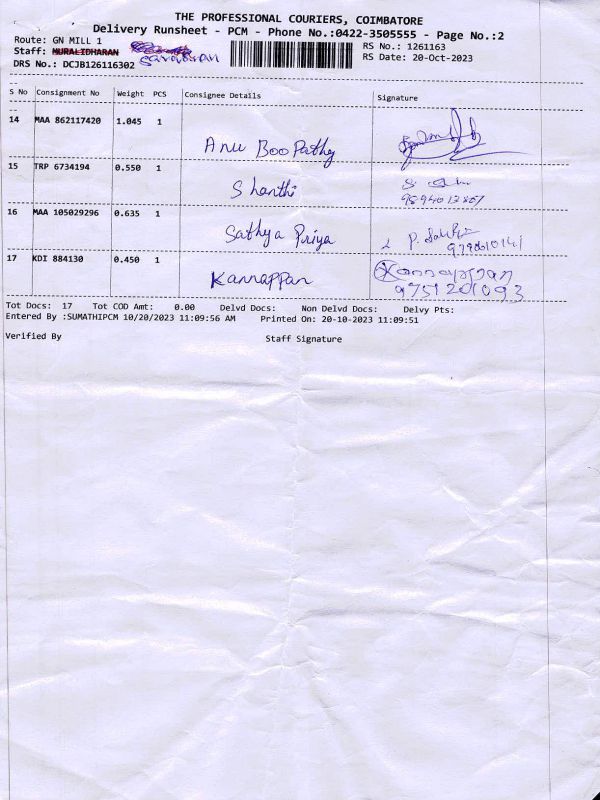 THE PROFESSIONAL COURIERS, COIMBATORE
Delivery Runsheet - PCM - Phone No.:0422-3505555 - Page No.:2
Route: GN MILL 1
RS No.: 1261163
Staff: MURALIDHARAN saravanan
RS Date: 20-Oct-2023
DRS No.: DCJB126116302
S No Consignment No Weight PCS Consignee Details Signature
14 MAA 862117420 1.045 1
Anu BooPathy
15 TRP 6734194 0.550 1
Shanthi
16 MAA 105029296 0.635 1
Sathya Priya
17 KDI 884130 0.450 1
Kannappan
9751201093
Tot Docs: 17 Tot COD Amt: 0.00 Delvd Docs: Non Delvd Docs: Delvy Pts:
Entered By :SUMATHIPCM 10/20/2023 11:09:56 AM Printed On: 20-10-2023 11:09:51
Verified By Staff Signature